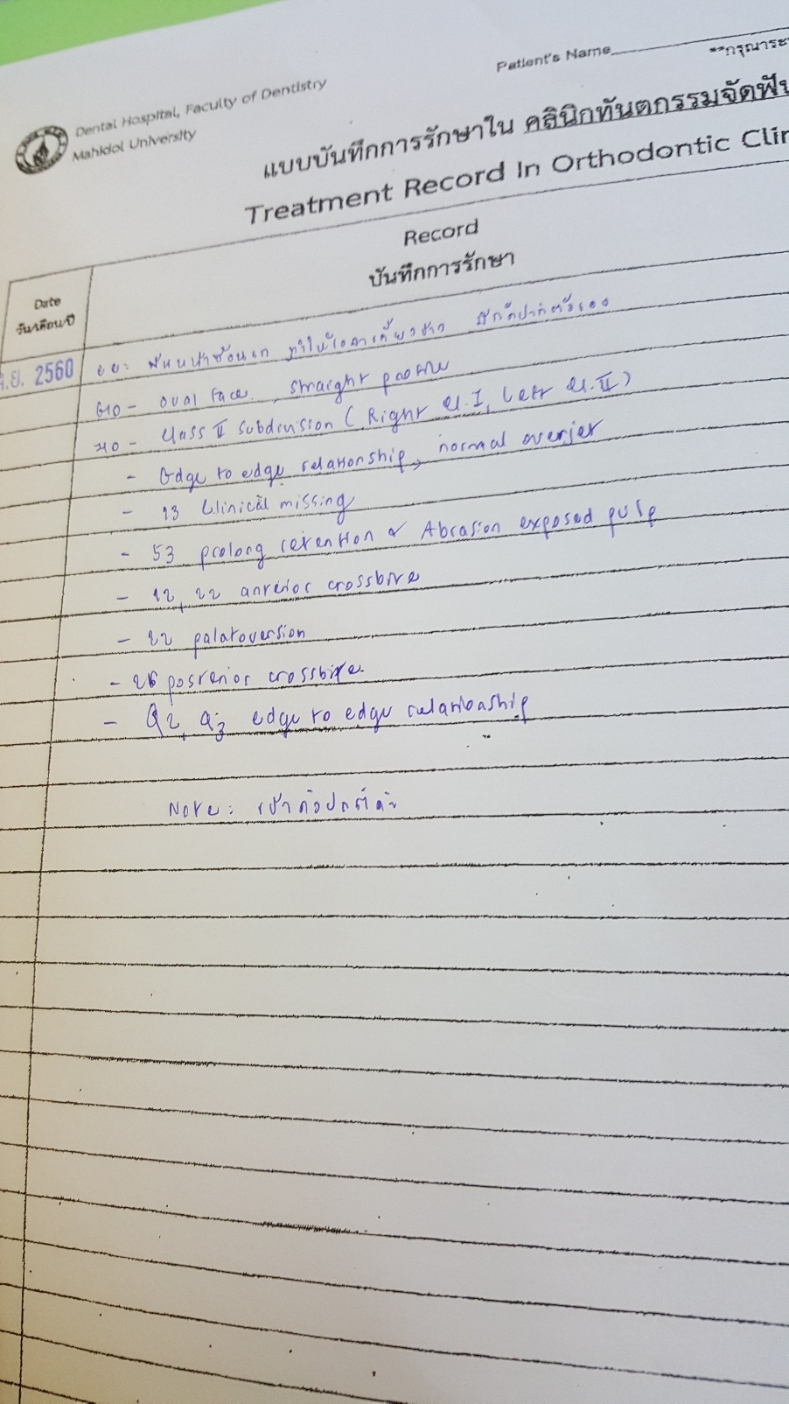 Patient's Name
**กรุณาระ
Dental Hospital, Faculty of Dentistry
Mahidol University
แบบบันทึกการรักษาใน คลินิกทันตกรรมจัดฟัน
Treatment Record In Orthodontic Clin
Date
วัน/เดือน/ปี
Record
บันทึกการรักษา
.ย. 2560
EIO - oval face, straight profile
IIO - Class II subdivision (Right Cl. I, Left Cl. II)
- Edge to edge relationship, normal overjet
- 13 Clinical missing
- 53 prolong retention & Abrasion exposed pulp
- 12, 22 anterior crossbite
- 22 palatoversion
- 26 posterior crossbite.
- Q2, Q3 edge to edge relationship
Note: